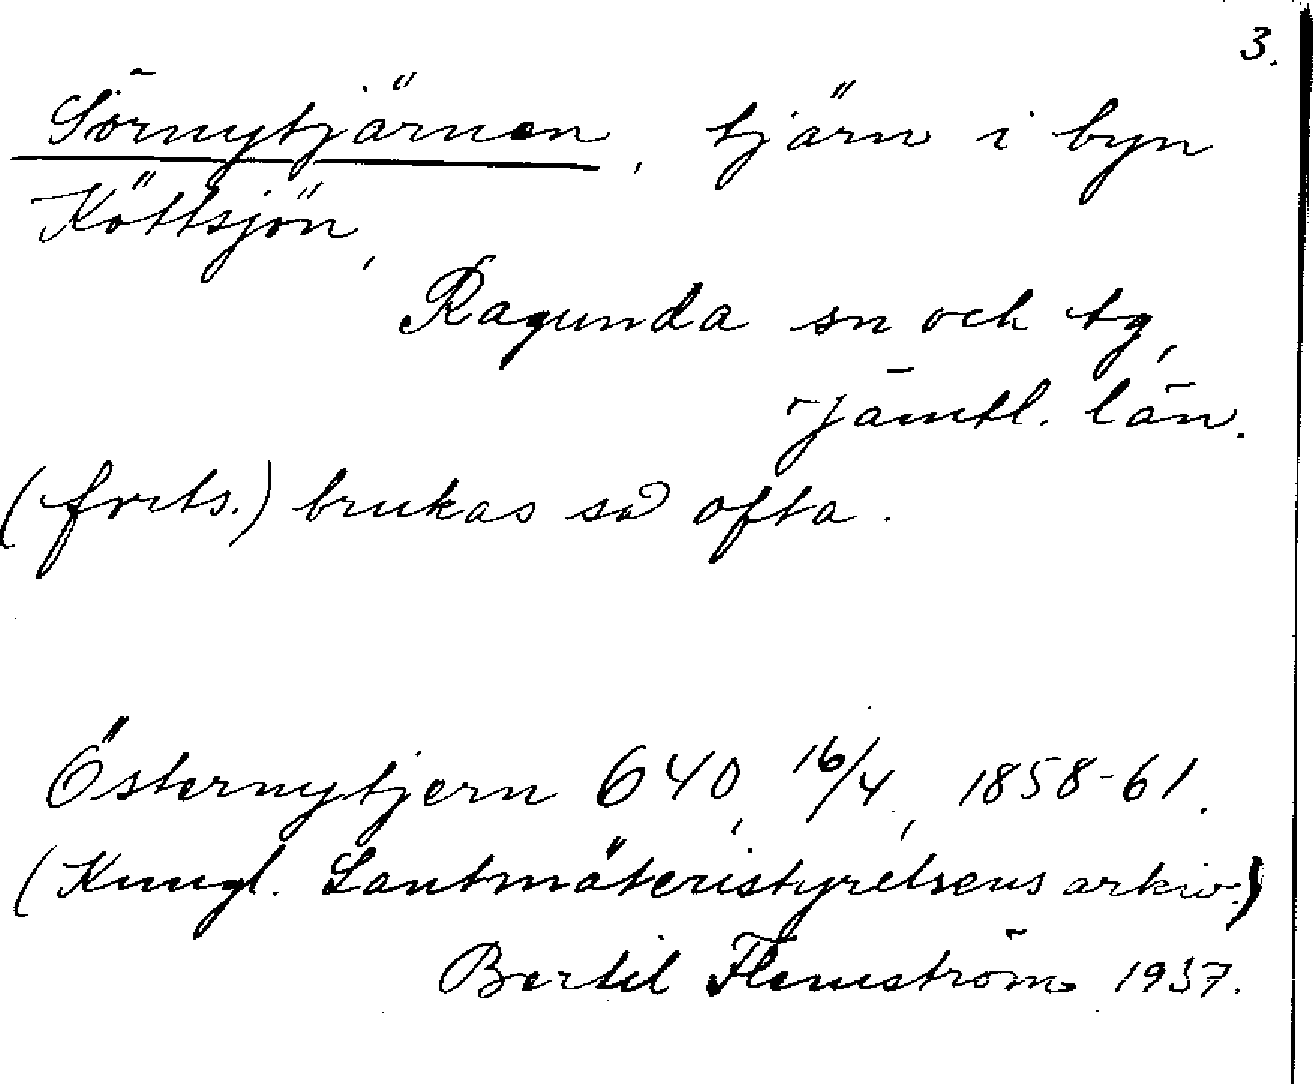 3.
Sörnytjärnen, tjärn i byn
Köttsjön,
Ragunda sn och tg,
Jämtl. län.
(forts.) brukas så ofta.
Österny tjern 640, 16/4, 1858-61.
(Kungl. Lantmäteristyrelsens arkiv.)
Bertil Flemström 1937.